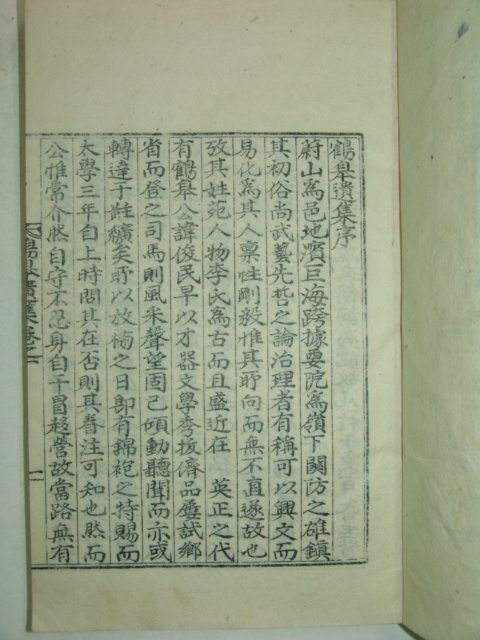 鶴皐遺集序
蔚山爲邑地濱巨海跨據要阨爲嶺下關防之雄鎭
其初俗尙武藝先哲之論治理者有稱可以興文而
易化爲其人稟性剛毅惟其所向而無不直遂故也
攷其姓苑人物李氏爲古而且盛近在 英正之代
有鶴皐公諱俊民早以才器文學秀拔儕品屢試鄕
省而登之司馬則風采聲望固已傾動聽聞而亦或
轉達于黈纊矣所以放榜之日卽有錦袍之特賜而
太學三年自上時問其在否則其眷注可知也然而
公惟常介然自守不忍身自干冒趍營故當路無有
鶴皐遺集卷之一
一